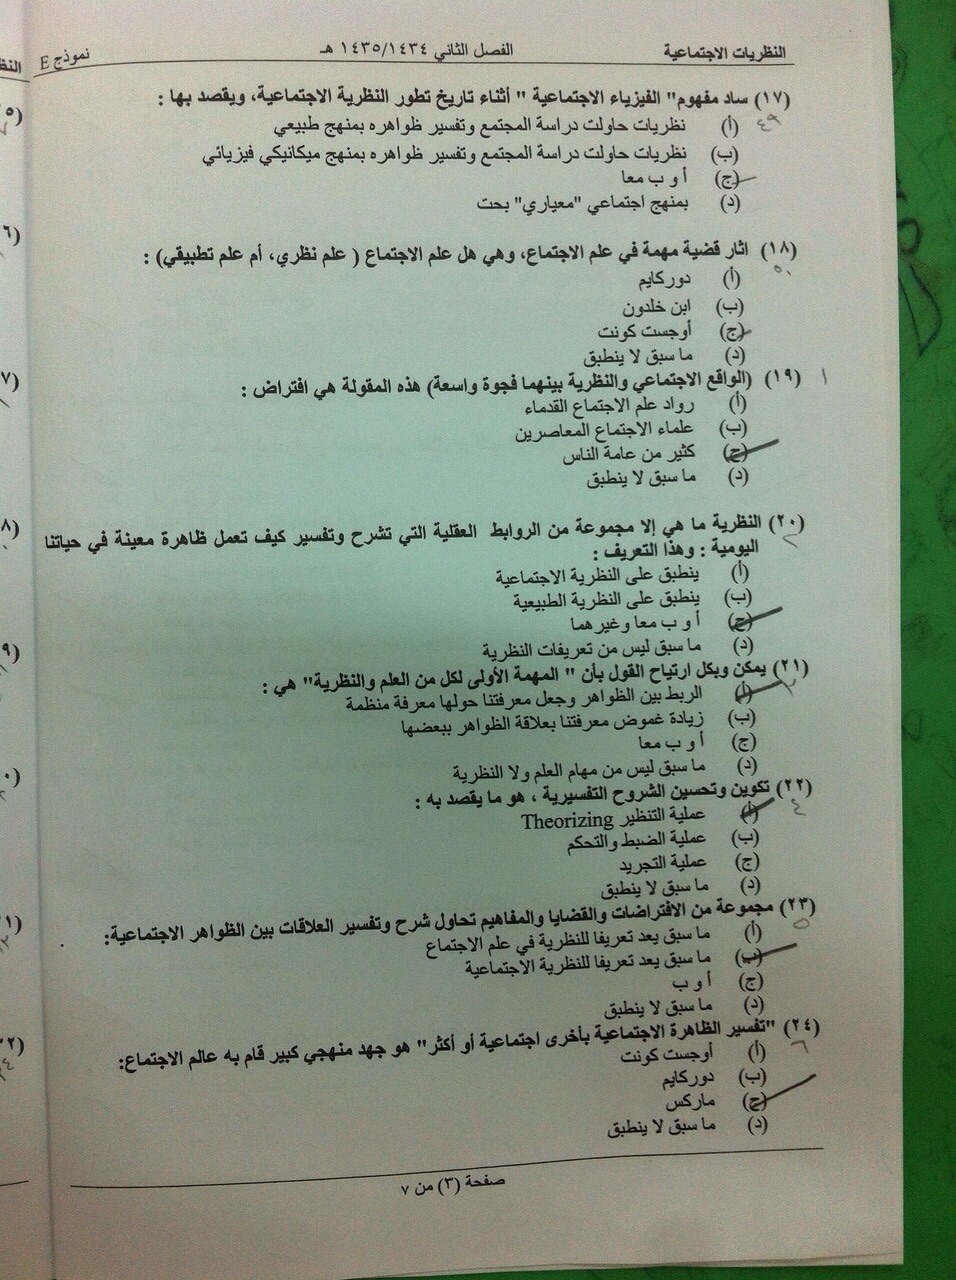 النظريات الاجتماعية
الفصل الثاني ١٤٣٥/١٤٣٤ هـ
نموذج E
(١٧) ساد مفهوم" الفيزياء الاجتماعية " أثناء تاريخ تطور النظرية الاجتماعية، ويقصد بها :
٤٩
(أ) نظريات حاولت دراسة المجتمع وتفسير ظواهره بمنهج طبيعي
(ب) نظريات حاولت دراسة المجتمع وتفسير ظواهره بمنهج ميكانيكي فيزيائي
(ج) أ و ب معا
(د) بمنهج اجتماعي "معياري" بحت
(١٨) اثار قضية مهمة في علم الاجتماع، وهي هل علم الاجتماع ( علم نظري، أم علم تطبيقي) :
٥٠
(أ) دوركايم
(ب) ابن خلدون
(ج) أوجست كونت
(د) ما سبق لا ينطبق
١ (١٩) (الواقع الاجتماعي والنظرية بينهما فجوة واسعة) هذه المقولة هي افتراض :
(أ) رواد علم الاجتماع القدماء
(ب) علماء الاجتماع المعاصرين
(ج) كثير من عامة الناس
(د) ما سبق لا ينطبق
(٢٠) النظرية ما هي إلا مجموعة من الروابط العقلية التي تشرح وتفسير كيف تعمل ظاهرة معينة في حياتنا
٢ اليومية : وهذا التعريف :
(أ) ينطبق على النظرية الاجتماعية
(ب) ينطبق على النظرية الطبيعية
(ج) أ و ب معا وغيرهما
(د) ما سبق ليس من تعريفات النظرية
(٢١) يمكن وبكل ارتياح القول بأن " المهمة الأولى لكل من العلم والنظرية" هي :
٣
(أ) الربط بين الظواهر وجعل معرفتنا حولها معرفة منظمة
(ب) زيادة غموض معرفتنا بعلاقة الظواهر ببعضها
(ج) أ و ب معا
(د) ما سبق ليس من مهام العلم ولا النظرية
(٢٢) تكوين وتحسين الشروح التفسيرية ، هو ما يقصد به :
٤
(أ) عملية التنظير Theorizing
(ب) عملية الضبط والتحكم
(ج) عملية التجريد
(د) ما سبق لا ينطبق
(٢٣) مجموعة من الافتراضات والقضايا والمفاهيم تحاول شرح وتفسير العلاقات بين الظواهر الاجتماعية:
٥
(أ) ما سبق يعد تعريفا للنظرية في علم الاجتماع
(ب) ما سبق يعد تعريفا للنظرية الاجتماعية
(ج) أ و ب
(د) ما سبق لا ينطبق
(٢٤) "تفسير الظاهرة الاجتماعية بأخرى اجتماعية أو أكثر" هو جهد منهجي كبير قام به عالم الاجتماع:
٦
(أ) أوجست كونت
(ب) دوركايم
(ج) ماركس
(د) ما سبق لا ينطبق
صفحة (٣) من ٧